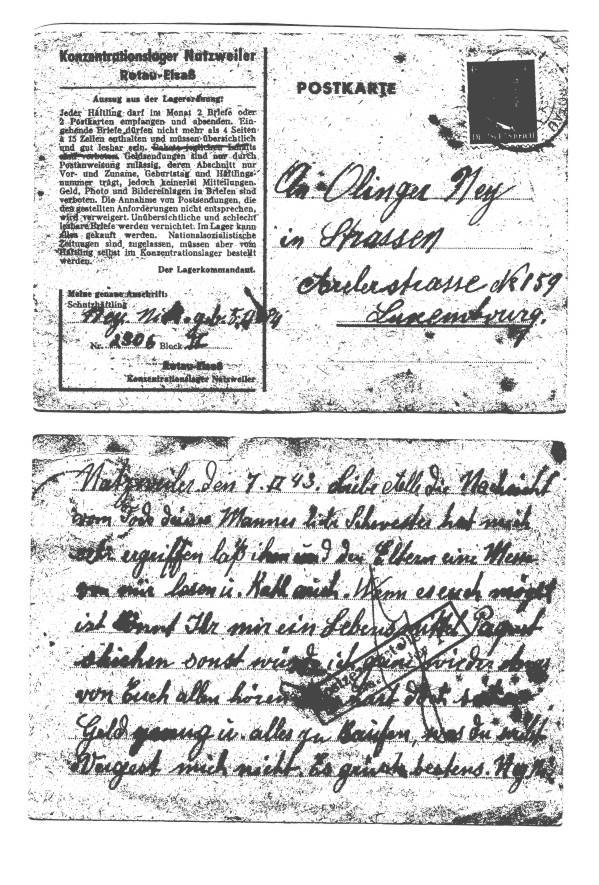 Konzentrationslager Natzweiler
Rotau-Elsaß
Auszug aus der Lagerordnung:
Jeder Häftling darf im Monat 2 Briefe oder
2 Postkarten empfangen und absenden. Ein-
gehende Briefe dürfen nicht mehr als 4 Seiten
à 15 Zeilen enthalten und müssen übersichtlich
und gut lesbar sein. Pakete jeglichen Inhalts
sind verboten. Geldsendungen sind nur durch
Postanweisung zulässig, deren Abschnitt nur
Vor- und Zuname, Geburtstag und Häftlings-
nummer trägt, jedoch keinerlei Mitteilungen.
Geld, Photo und Bildereinlagen in Briefen sind
verboten. Die Annahme von Postsendungen, die
den gestellten Anforderungen nicht entsprechen,
wird verweigert. Unübersichtliche und schlecht
lesbare Briefe werden vernichtet. Im Lager kann
alles gekauft werden. Nationalsozialistische
Zeitungen sind zugelassen, müssen aber vom
Häftling selbst im Konzentrationslager bestellt
werden.
Der Lagerkommandant.
Meine genaue Anschrift:
Schutzhäftling
Ney. Nik. geb.
Nr. 2306 Block II
Rotau-Elsaß
Konzentrationslager Natzweiler
POSTKARTE
An Olinger Ney
in Strassen
Arelerstrasse No 159
Luxembourg.
Natzweiler den 7. 43. Liebe alle die Nachricht
vom Tode deines Mannes liebe Schwester hat mich
sehr ergriffen laß ihm und den Eltern eine Messe
von mir lesen u. Kath auch. Wenn es euch möglich
ist könnt Ihr mir ein Lebensmittel Paquet
schicken sonst würde ich gern wieder etwas
von Euch allen hören
Geld genug u. alles zu kaufen, was du nicht
Vergest mich nicht. Es grüsst bestens. Ney